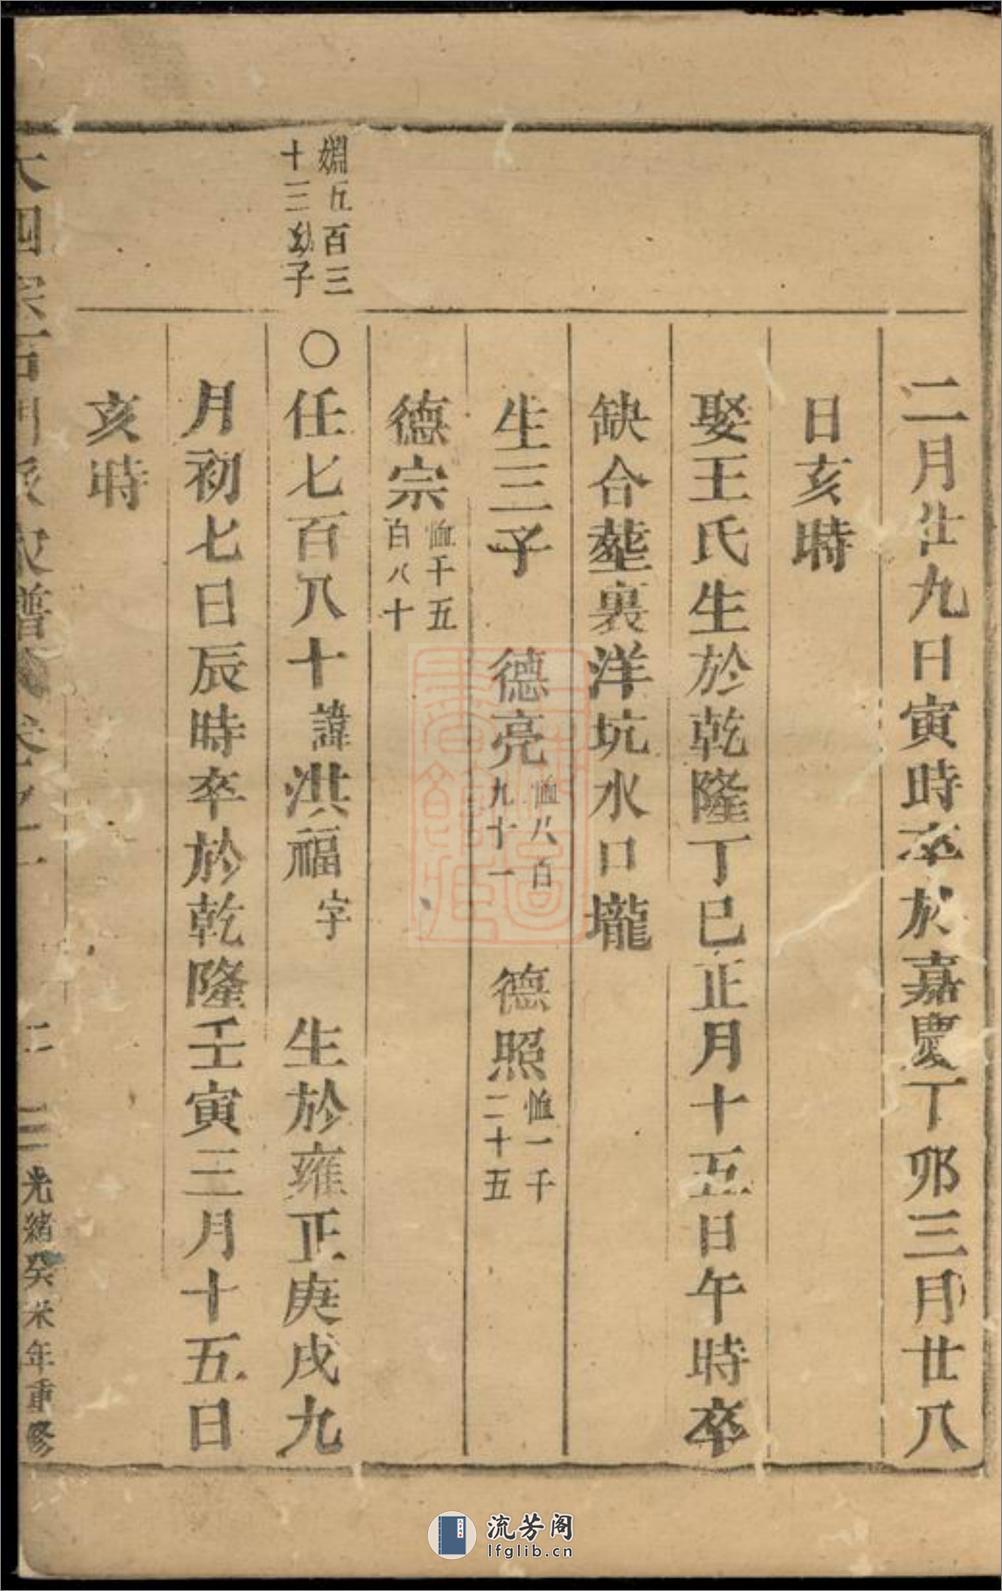 二月廿九日寅時卒於嘉慶丁卯三月廿八
日亥時
娶王氏生於乾隆丁巳正月十五日午時卒
缺合塟裏洋坑水口壠
生三子 德亮 恤八百九十一 德照 恤一千二十五
德宗 恤千五百八十
嫺五百三十三幼子
○任七百八十諱洪福字 生於雍正庚戌九
月初七日辰時卒於乾隆壬寅三月十五日
亥時
光緒癸未年重修
流芳阁
lfglib.cn